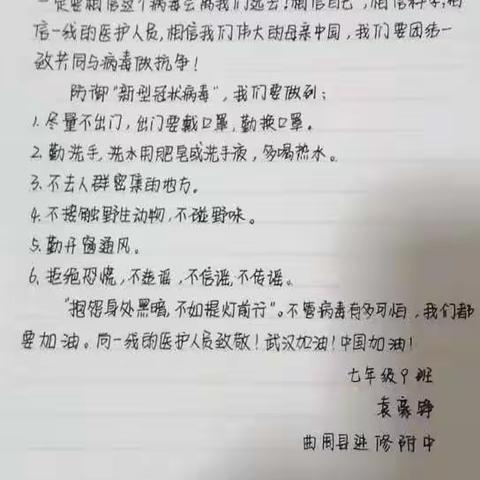 一定要相信这个病毒会离我们远去!相信自己,相信科学,相
信一线的医护人员,相信我们伟大的母亲中国,我们要团结一
致共同与病毒做抗争!
防御"新型冠状病毒",我们要做到:
1.尽量不出门,出门要戴口罩,勤换口罩。
2.勤洗手,洗水用肥皂或洗手液,多喝热水。
3.不去人群密集的地方。
4.不接触野生动物,不碰野味。
5.勤开窗通风。
6.拒绝恐慌,不造谣,不信谣,不传谣。
"抱怨身处黑暗,不如提灯前行"。不管病毒有多可怕,我们都
要加油。向一线的医护人员致敬!武汉加油!中国加油!
七年级9班
袁豪铮
曲周县进修附中